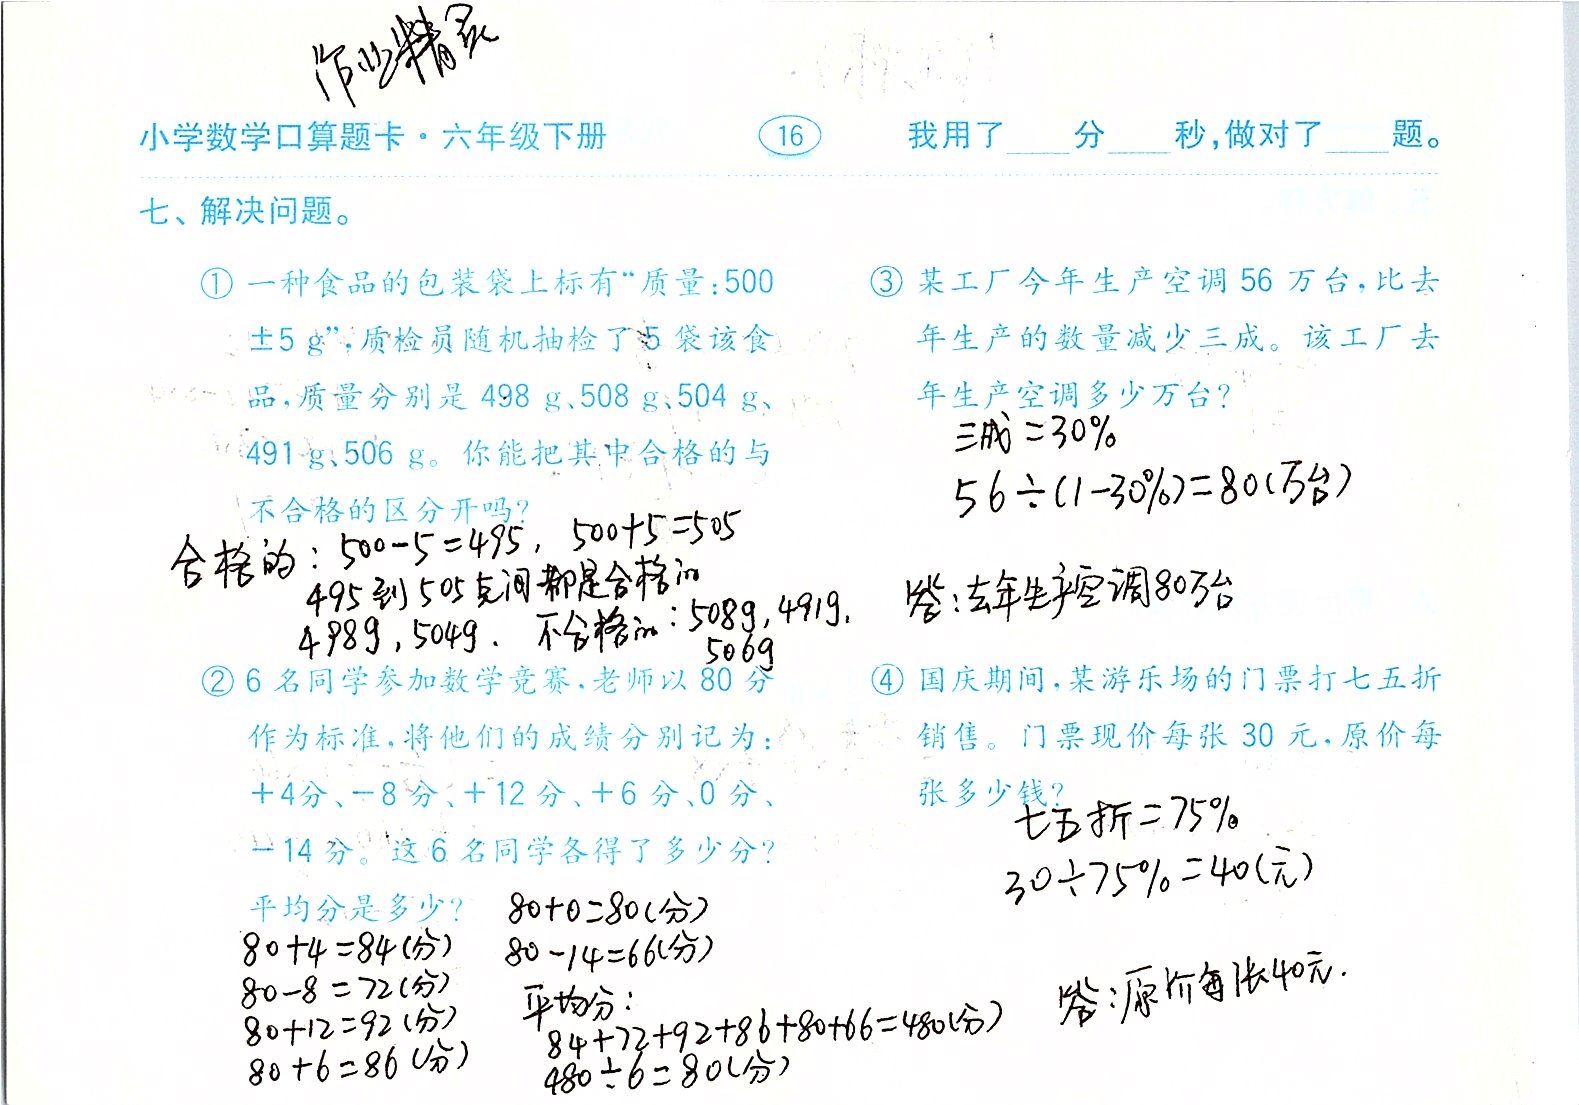 作业精灵
小学数学口算题卡·六年级下册
16
我用了____分____秒,做对了____题。
七、解决问题。
① 一种食品的包装袋上标有“质量:500
±5 g”,质检员随机抽检了5袋该食
品,质量分别是 498 g、508 g、504 g、
491 g、506 g。你能把其中合格的与
不合格的区分开吗?
合格的:500-5=495, 500+5=505
495到505克间都是合格的
498g,504g. 不合格的:508g,491g,
506g
② 6名同学参加数学竞赛,老师以80分
作为标准,将他们的成绩分别记为:
+4分、-8分、+12分、+6分、0分、
-14分。这6名同学各得了多少分?
平均分是多少?
80+4=84(分)
80-8=72(分)
80+12=92(分)
80+6=86(分)
80+0=80(分)
80-14=66(分)
平均分:
84+72+92+86+80+66=480(分)
480÷6=80(分)
③ 某工厂今年生产空调56万台,比去
年生产的数量减少三成。该工厂去
年生产空调多少万台?
三成=30%
56÷(1-30%)=80(万台)
答:去年生产空调80万台
④ 国庆期间,某游乐场的门票打七五折
销售。门票现价每张30元,原价每
张多少钱?
七五折=75%
30÷75%=40(元)
答:原价每张40元.